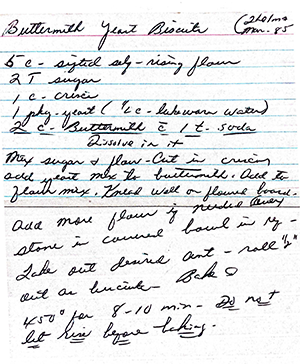 Buttermilk Yeast Biscuits (Thelma
Mar. 85
5 c - sifted self-rising flour
2 T sugar
1 c - crisco
1 pkg. yeast (1/2 c - lukewarm water)
2 c - Buttermilk c̄ 1 t. soda
Dissolve in it
Mix sugar & flour - Cut in crisco
add yeast mix to buttermilk. Add to
flour mix. Knead well on floured board.
add more flour if needed (over)
store in covered bowl in ref -
Take out desired amt - roll 1/2"
out as biscuits - Bake @
450° for 8-10 min - Do not
let rise before baking.